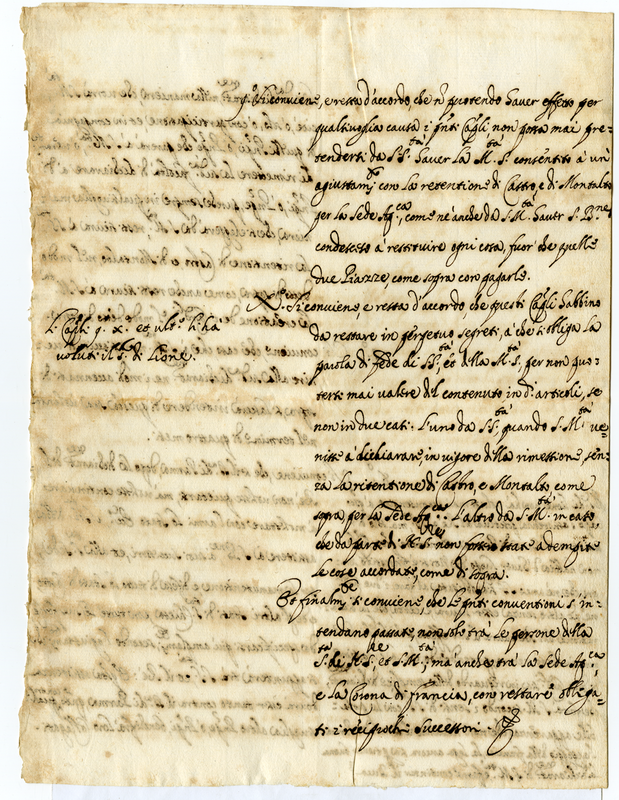 9.º Si conviene, e resta d'accordo, che nõ potendo haver effetto per
qualsivoglia causa i pñti Capli non possa mai pre=
tendersi da S. S.tà haver la M.tà S. consentito à un'
agiustam.to con la retentione di Castro, e di Montalto
per la Sede Ap.ca, come nè anche da S. M.tà haver S. B.ne
condesceso à restituire ogni cosa, fuor che quelle
due Piazze, come sopra con pagarle.
X.º Si conviene, e resta d'accordo che questi Capli habbino
da restare in perpetuo segreti, à che si obliga la
parola di fede di S. S.tà, et della M.tà S. per non po=
tersi mai valere del contenuto in d.i articoli, se
non in due casi. L'uno da S. S.tà quando S. M.tà ve=
nisse à dichiarare, in vigore della rimessione, sen=
za la ritentione di Castro, e Montalto come
sopra per la Sede Ap.ca. L'altro da S. M.tà in caso,
che da parte di N. S.re non fossero state adempite
le cose accordate, come di sopra.
Et finalm.te si conviene che le pñti conventioni s'in=
tendano passate, non solo trà le persone della
S.tà di N. S.re, et S. M.tà; mà anche trà la Sede Ap.ca,
e la Corona di francia, con restare obliga=
ti i reciprochi Successori.
Li Capli 9. X.º et ult.º li ha
voluti il S.r di Lione.